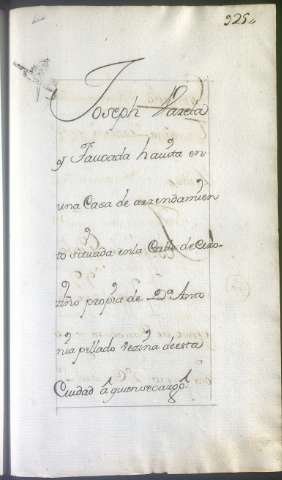 325
Joseph Varela
y Taboada havita en
una Casa de arrendamien
to situada en la Calle de
propia de Da Anto
nia pellado vezina de esta
Ciudad a quien se cargo